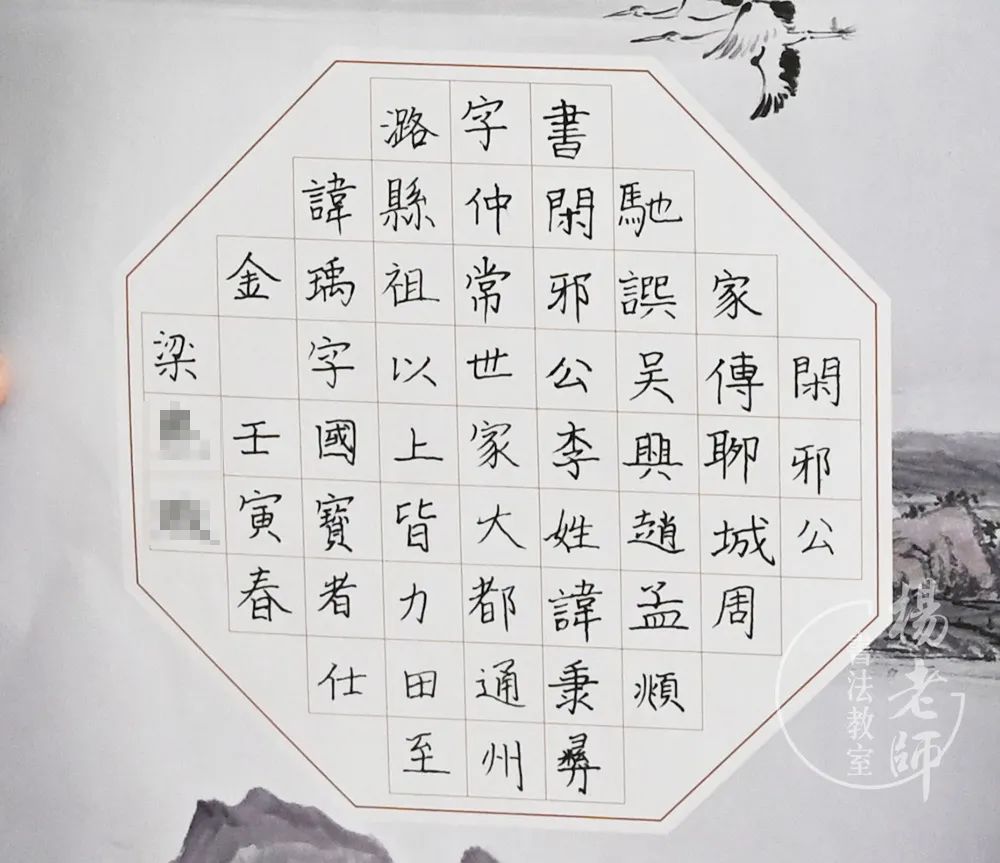 閑邪公
家傳聊城周
馳譔吴興趙孟頫
書閑邪公李姓諱秉彝
字仲常世家大都通州
潞縣祖以上皆力田至
諱瑀字國寶者仕
金 壬寅春
梁
楊老師
書法教室